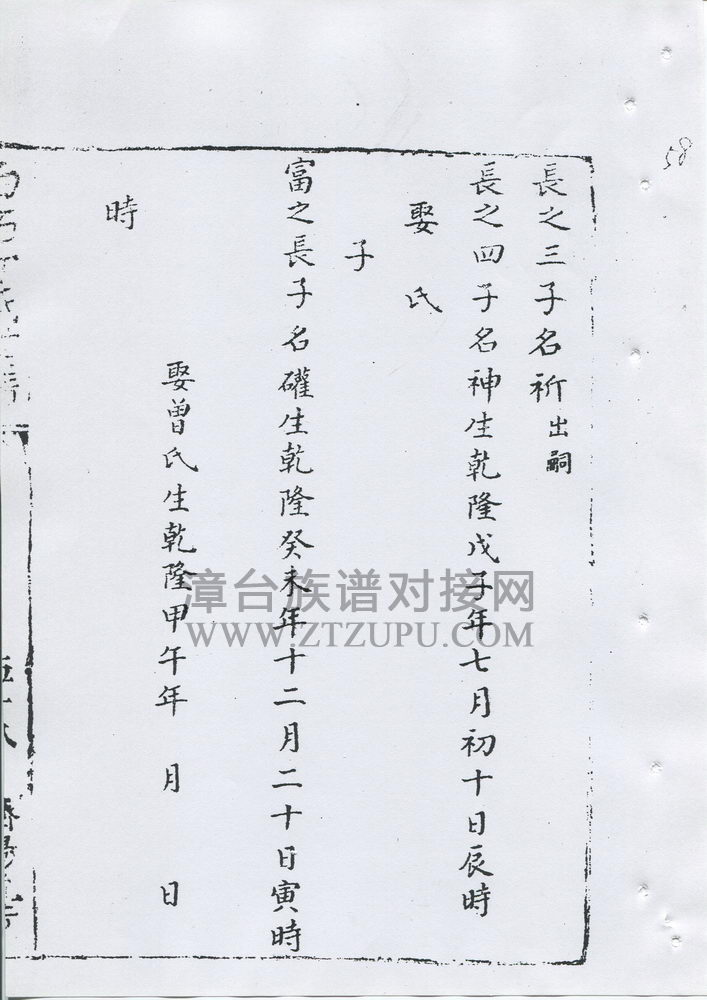 58
長之三子名祈出嗣
長之四子名神生乾隆戊子年七月初十日辰時
娶氏
子
富之長子名礶生乾隆癸未年十二月二十日寅時
娶曾氏生乾隆甲午年 月 日
時
漳台族谱对接网
WWW.ZTZUPU.COM